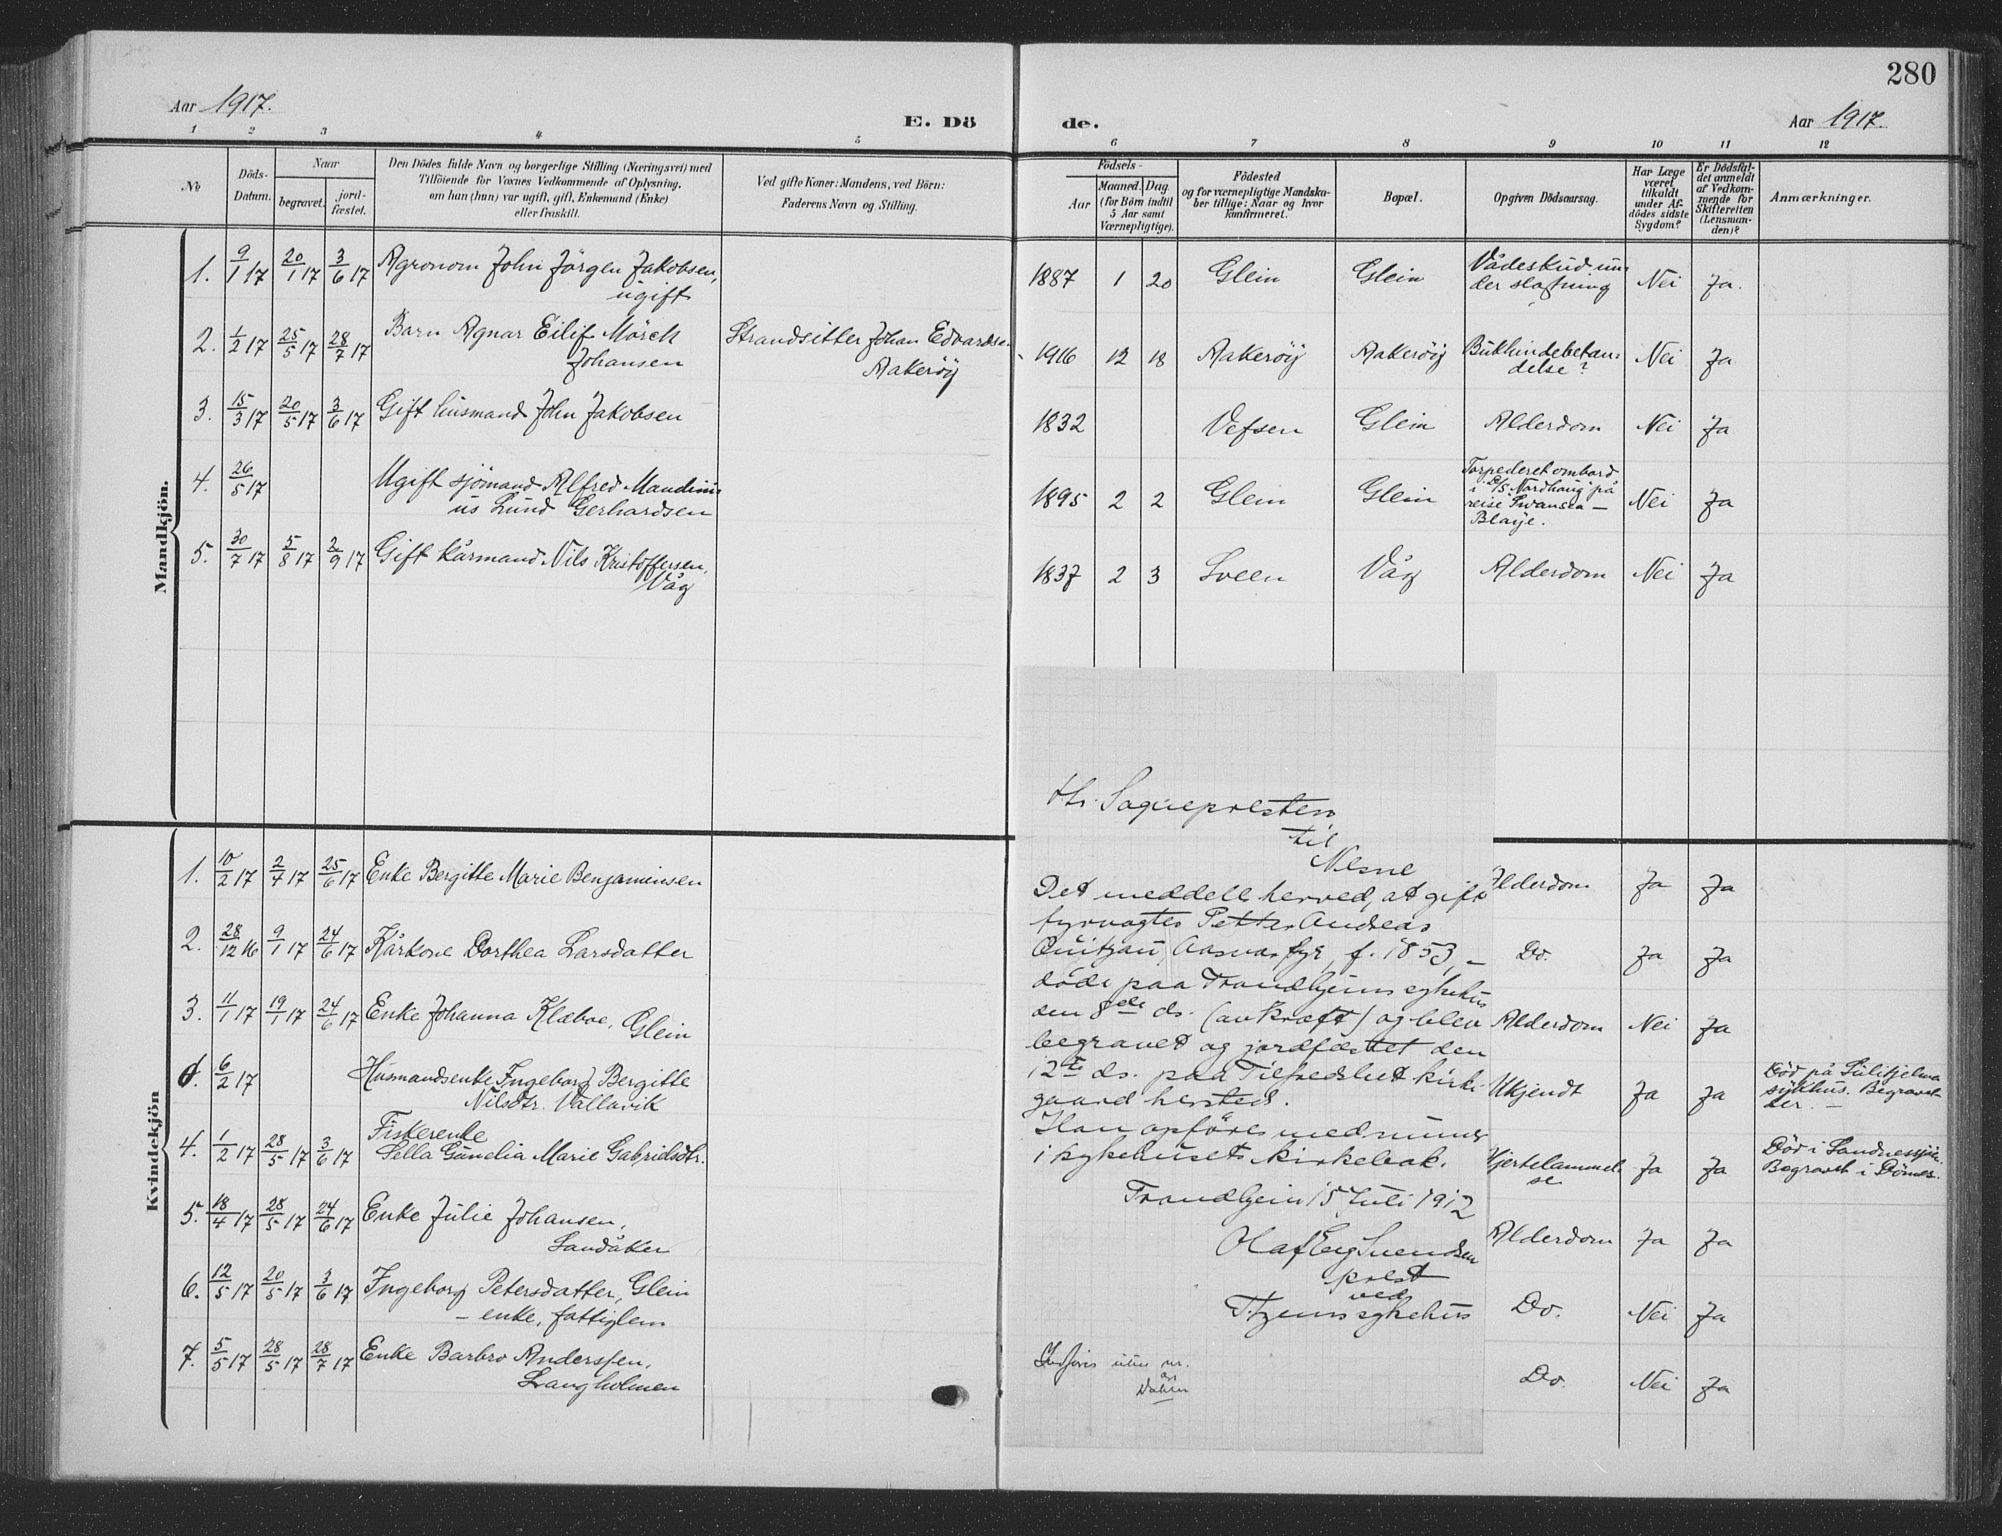 280
Aar 1917.
E. Dö
de.
Aar 1917.
1 2 3 4 5
6 7 8 9 10 11 12
No
Döds-
Datum.
Naar
begravet.
jord-
fæstet.
Den Dödes fulde Navn og borgerlige Stilling (Næringsvei) med
Tilföiende for Voxnes Vedkommende af Oplysning,
om han (hun) var ugift, gift, Enkemand (Enke)
eller fraskilt.
Ved gifte Koner: Mandens, ved Börn:
Faderens Navn og Stilling.
Födsels-
Aar
Maaned. Dag.
(for Börn indtil
5 Aar samt
Værnepligtige).
Födested
og for værnepligtige Mandska-
ber tillige: Naar og hvor
konfirmeret.
Bopæl.
Opgiven Dödsaarsag.
Har Læge
været
tilkaldt
under Af-
dödes sidste
Sygdom?
Er Dödsfal-
det anmeldt
af Vedkom-
mende for
Skifteretten
(Lensman-
den)?
Anmærkninger.
Mandkjön.
1. 9/1 17 20/1 17 3/6 17 Agronom John Jörgen Jakobsen,
ugift
1887 1 20 Glein Glein Vådeskud un-
der slagtning Nei Ja.
2. 1/2 17 25/5 17 28/7 17 Barn Agnar Eilif Mörck
Johansen
Strandsitter Johan Edvardsen
Aakeröy
1916 12 18 Aakeröy Aakeröy Bukhindebetæn-
delse? Nei Ja
3. 15/3 17 20/5 17 3/6 17 Gift husmand John Jakobsen
1832 Vefsen Glein Alderdom Nei Ja
4. 26/5 17 Ugift sjömand Alfred Mandini-
us Lund Gerhardsen
1895 2 2 Glein Glein Torpederet ombord
i D/S. Nordhaug på
reise Swansea —
Blaye. Nei Ja
5. 30/7 17 5/8 17 2/9 17 Gift kårmand Nils Kristoffersen,
Våg
1837 2 3 Sveen Våg Alderdom Nei Ja
Kvindekjön
1. 10/2 17 2/4 17 25/6 17 Enke Bergitte Marie Benjaminsen
Alderdom Ja Ja
2. 28/12 16 9/1 17 24/6 17 Kårkone Dorthea Larsdatter
Do. Ja Ja
3. 11/1 17 19/1 17 24/6 17 Enke Johanna Klæboe, Glein
Alderdom Nei Ja
d. 6/2 17 Husmandsenke Ingeborg Bergitte
Nilsdtr. Vallavik
Ukjendt Ja Ja Död på Sulitjelma
sykhus. Begravet
der. —
4. 1/2 17 28/5 17 3/6 17 Fiskerenke
Sella Gunelia Marie Gabrielsdtr.
Hjertelammel-
se Ja Ja Död i Sandnessjöen.
Begravet i Dönnes.
5. 18/4 17 28/5 17 24/6 17 Enke Julie Johansen,
Sandåker
Alderdom Ja Ja
6. 12/5 17 20/5 17 3/6 17 Ingeborg Petersdatter, Glein
— enke, fattiglem
Do. Nei Ja
7. 5/5 17 28/5 17 28/7 17 Enke Barbro Anderssen,
Langholmen
Do. Nei Ja
Hr. Sognepresten
til
Nesne
Det meddeles herved, at gift
fyrvogter Petter Andreas
Quitzau, Aasvær fyr, f. 1853, —
döde paa Trondhjems sykehus
den 8de ds. (av Kræft) og blev
begravet og jordfæstet den
12te ds. paa Tilfredshet kirke-
gaard hersteds.
Han opföres med numer
i sykehusets kirkebok.
Trondhjem 15 Juli 1912
Olaf Svendsen
prest
ved
T.hjems sykehus
Indföres uten nr.